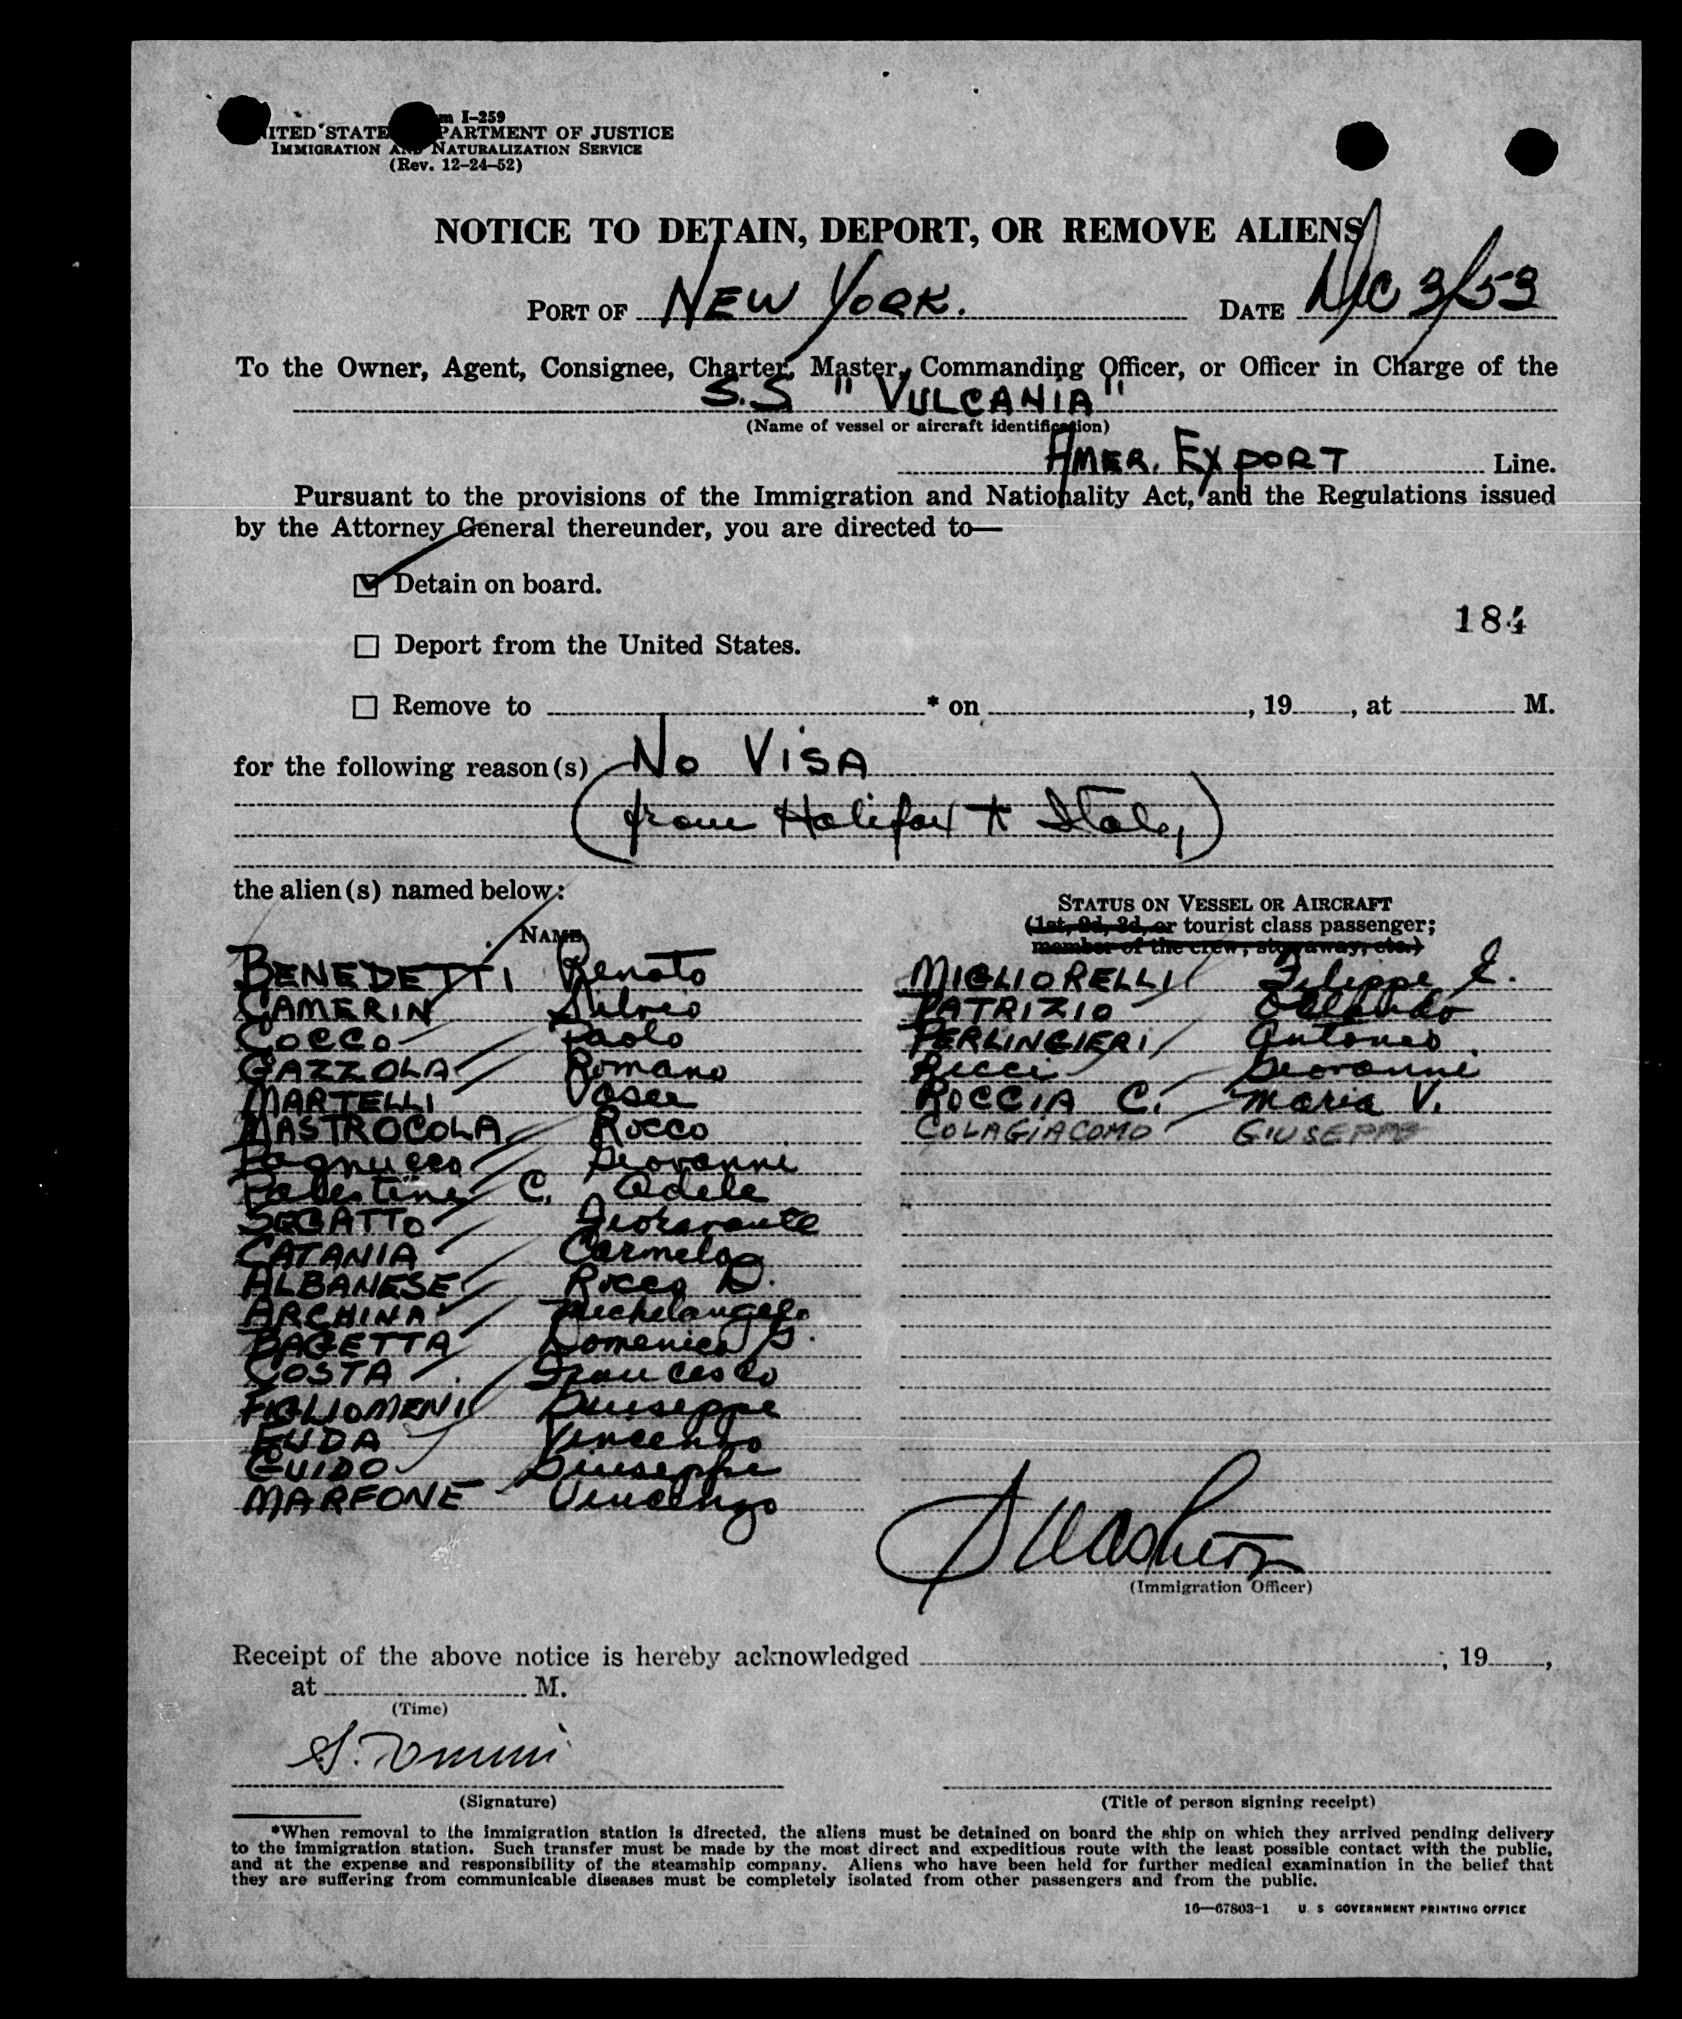 m I-259
ITED STATE PARTMENT OF JUSTICE
IMMIGRATION AND NATURALIZATION SERVICE
(Rev. 12-24-52)
NOTICE TO DETAIN, DEPORT, OR REMOVE ALIENS
PORT OF NEW YORK. DATE Dec 3/53
To the Owner, Agent, Consignee, Charter, Master, Commanding Officer, or Officer in Charge of the
S.S "VULCANIA"
(Name of vessel or aircraft identification)
AMER. EXPORT Line.
Pursuant to the provisions of the Immigration and Nationality Act, and the Regulations issued
by the Attorney General thereunder, you are directed to—
☑ Detain on board.
184
☐ Deport from the United States.
☐ Remove to * on , 19 , at M.
for the following reason(s) No VISA
(from Halifax to Italy)
the alien(s) named below:
NAME
STATUS ON VESSEL OR AIRCRAFT
(1st, 2d, 3d, or tourist class passenger;
member of the crew, stowaway, etc.)
BENEDETTI Renato
CAMERIN Silvio
COCCO Paolo
GAZZOLA Romano
MARTELLI
MASTROCOLA Rocco
Pagnucco Giovanni
Palestine C. Adele
SEGATTO
CATANIA Carmelo
ALBANESE Rocco D.
ARCHINA' Michelangelo
BAGETTA Domenico G.
COSTA Francesco
FIGLIOMENI Giuseppe
FUDA Vincenzo
GUIDO Giuseppe
MARFONE Vincenzo
MIGLIORELLI Filippo E.
PATRIZIO Orlando
PERLINGIERI Antonio
Ricci Giovanni
ROCCIA C. Maria V.
COLAGIACOMO GIUSEPPE
(Immigration Officer)
Receipt of the above notice is hereby acknowledged , 19 ,
at M.
(Time)
(Signature)
(Title of person signing receipt)
*When removal to the immigration station is directed, the aliens must be detained on board the ship on which they arrived pending delivery
to the immigration station. Such transfer must be made by the most direct and expeditious route with the least possible contact with the public,
and at the expense and responsibility of the steamship company. Aliens who have been held for further medical examination in the belief that
they are suffering from communicable diseases must be completely isolated from other passengers and from the public.
16—67803-1 U. S. GOVERNMENT PRINTING OFFICE